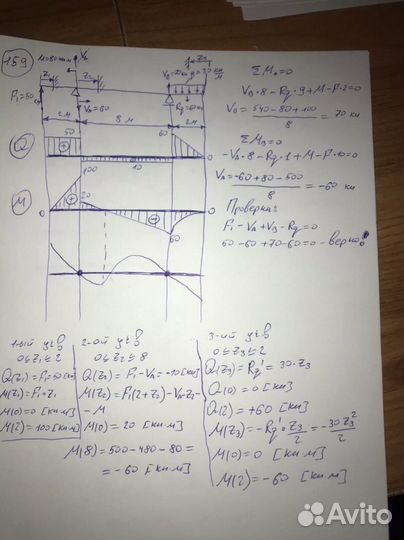 159
M=80 кн·м
VA
z1
z2
z3
F1=50 кн
VA=60
Rq=60 кн
2м
8м
2м
Q
50
60
10
0
0
100
20
M
0
0
60
ΣMA=0
VB·8-Rq·9+M-F·2=0
VB=(540-80+100)/8=70 кн
ΣMB=0
-VA·8-Rq·1+M-F·10=0
VA=(-60+80-500)/8=-60 кн
Проверка:
F1-VA+VB-Rq=0
50-60+70-60=0 - верно!
1-ый уч-в
0≤z1≤2
Q(z1)=F1=50[кн]
M(z1)=F1·z1
M(0)=0[кн·м]
M(2)=100[кн·м]
2-ой уч-в
0≤z2≤8
Q(z2)=F1-VA=-10[кн]
M(z2)=F1(2+z2)-VA·z2-
-M
M(0)=20[кн·м]
M(8)=500-480-80=
=-60[кн·м]
3-ий уч-в
0≤z3≤2
Q(z3)=Rq'=30·z3
Q(0)=0[кн]
Q(2)=+60[кн]
M(z3)=-Rq'·z3/2=-30z3²/2
M(0)=0[кн·м]
M(2)=-60[кн·м]
Avito